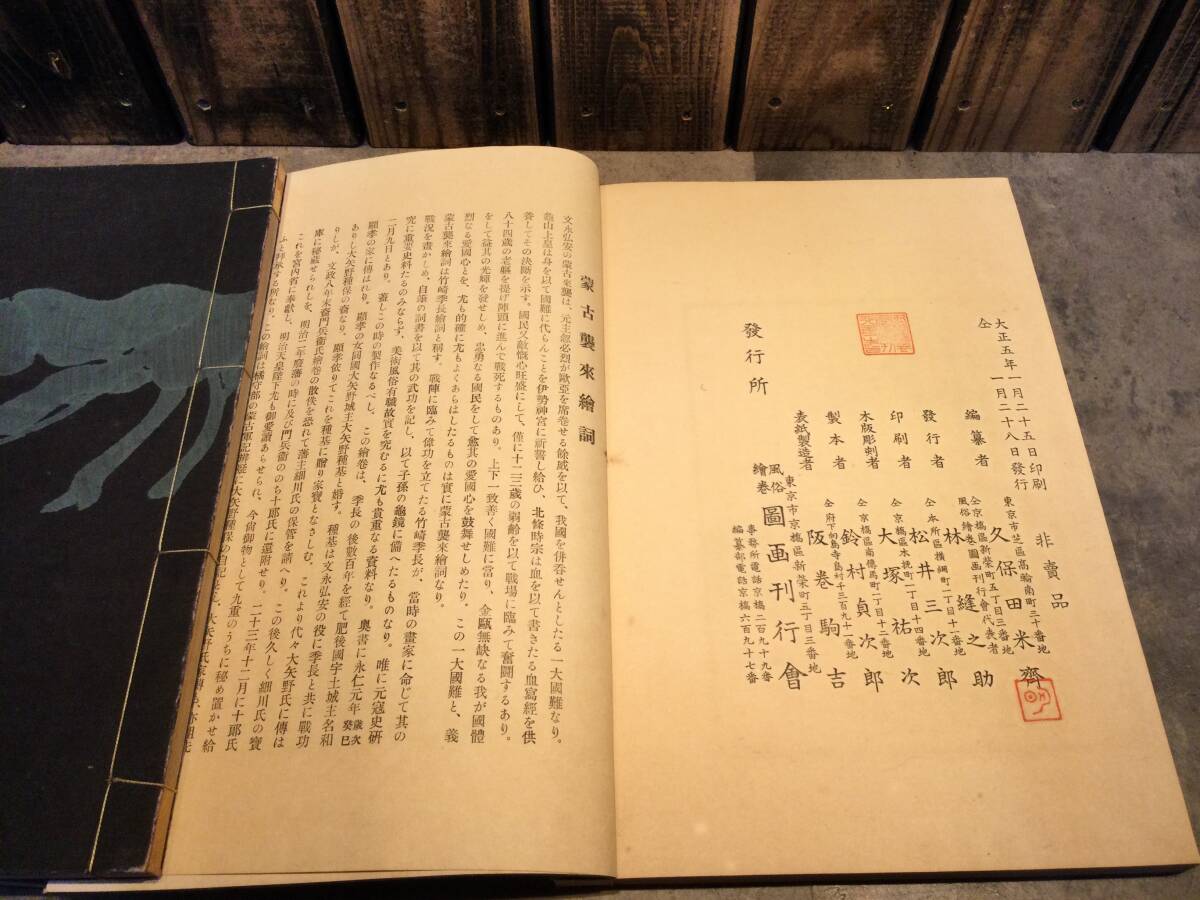 非賣品
大正五年一月二十五日印刷
仝　一月二十八日發行
編纂者
東京市芝區高輪南町三十番地
久保田米齋
發行者
仝京橋區新榮町五丁目三番地
風俗繪卷圖画刊行會代表者
林縫之助
印刷者
仝本所區横網町一丁目十四番地
松井三次郎
木版彫刻者
仝京橋區木挽町一丁目十二番地
大塚祐次
製本者
仝京橋區南傳馬町二丁目十二番地
鈴村貞次郎
表紙製造者
仝府下向島寺島村千三百九十一番地
阪巻駒吉
發行所
東京市京橋區新榮町五丁目三番地
風俗繪卷圖画刊行會
事務所電話京橋二百九十九番
編纂部電話京橋六百九十七番
蒙古襲來繪詞
文永弘安の蒙古來襲は、元主忽必烈が歐亞を席卷せる餘威を以て、我國を併呑せんとしたる一大國難なり。
龜山上皇は身を以て國難に代らんことを伊勢神宮に祈誓し給ひ、北條時宗は血を以て書きたる血寫經を供
養してその決斷を示す。國民又敵愾心旺盛にして、僅に十二三歳の弱齡を以て戰場に臨みて奮鬪するあり。
八十四歳の老軀を提げ陣頭に進んで戰死するものあり。上下一致善く國難に當り、金甌無缺なる我が國體
をして益其の光輝を發せしめ、忠勇なる國民をして愈其の愛國心を鼓舞せしめたり。この一大國難と、義
烈なる愛國心とを、尤も的確に尤もよくあらはしたるものは實に蒙古襲來繪詞なり。
蒙古襲來繪詞は竹崎季長繪詞と稱す。戰陣に臨みて偉功を立てたる竹崎季長が、當時の畫家に命じて其の
戰況を畫かしめ、自筆の詞書を以て其の武功を記し、以て子孫の龜鏡に備へたるものなり。唯に元寇史硏
究に重要史料たるのみならず、美術風俗有職故實を究むるに尤も貴重なる資料なり。奧書に永仁元年歲次癸巳
二月九日とあり。蓋しこの時の製作なるべし。この繪卷は、季長の後數百年を經て肥後國宇土城主名和
顯孝の家に傳はれり。顯孝の女同國大矢野城主大矢野種基と婚す。種基は文永弘安の役に季長と共に戰功
ありし大矢野種保の裔なり。顯孝依りてこれを種基に贈り家寶となさしむ、これより代々大矢野氏に傳は
りしが、文政八年末裔門兵衞氏繪卷の散佚を恐れて藩主細川氏の保管を請へり。この後久しく細川氏の寶
庫に秘藏せられしを、明治二年廢藩の時に及び門兵衞のち十郎氏に還附せり。二十三年十二月に十郎氏
これを宮內省に奉獻し、明治天皇陛下尤も御愛讀あらせられ、今尙御物として九重のうちに秘め置かせ給
ふと拜承する所なり。この繪詞は橘守部の蒙古軍記辨疑に大矢野種保の自記とし、大矢野氏家傳